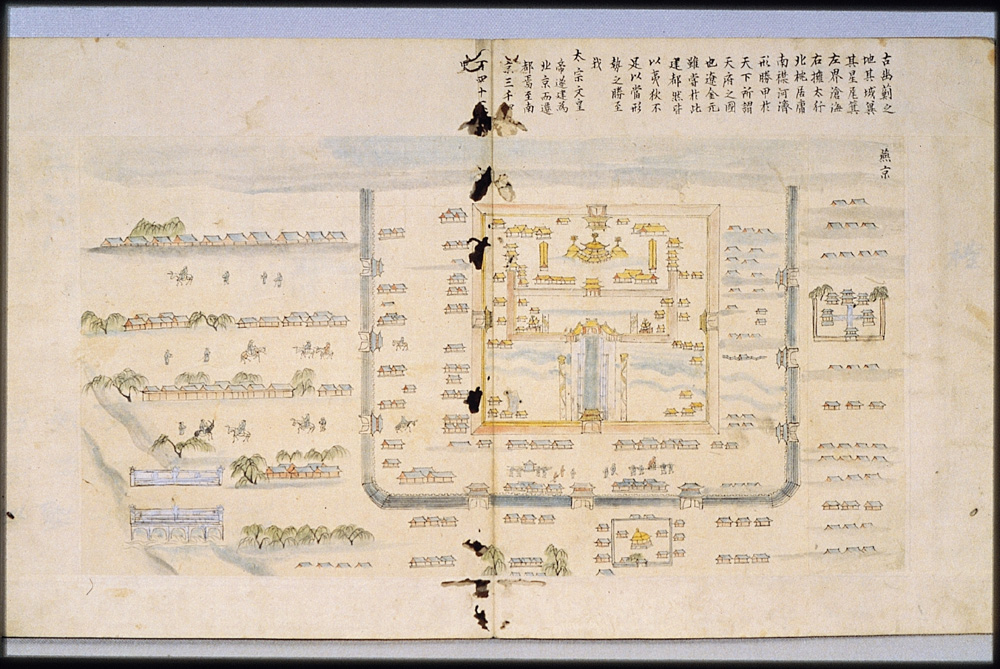 古幽薊之
地其域冀
其星尾箕
左界滄海
右擁太行
北枕居庸
南襟河濟
形勝甲於
天下所謂
天府之國
也遼金元
雖嘗於此
建都然皆
以夷狄不
足以當形
勢之勝至
我
太宗文皇
帝遂建為
北京而遷
都焉至南
京三千
四十
燕京